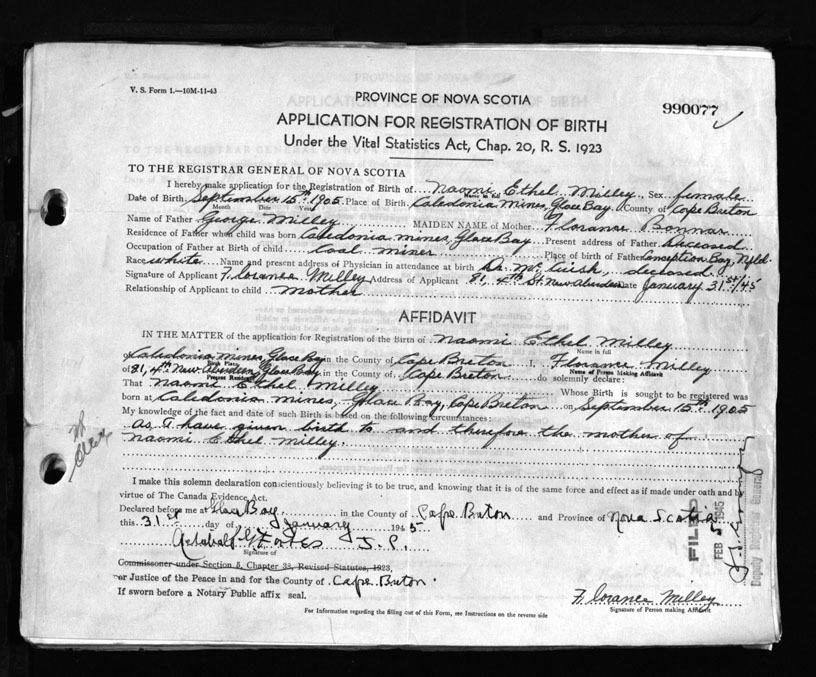 V. S. Form 1.—10M-11-43
PROVINCE OF NOVA SCOTIA
990077
APPLICATION FOR REGISTRATION OF BIRTH
Under the Vital Statistics Act, Chap. 20, R. S. 1923
TO THE REGISTRAR GENERAL OF NOVA SCOTIA
I hereby make application for the Registration of Birth of Naomi Ethel Milley, Sex female
Name in full
Date of Birth September 15th 1905 Place of Birth Caledonia Mines, Glace Bay, County of Cape Breton
Month Date Year
Name of Father George Milley MAIDEN NAME of Mother Florance Bonnar
Residence of Father when child was born Caledonia mines, Glace Bay Present address of Father deceased
Occupation of Father at Birth of child Coal miner Place of birth of Father Conception Bay, Nfld.
Race white Name and present address of Physician in attendance at birth Dr. Mc , deceased
Signature of Applicant Florance Milley Address of Applicant 81, 4th St. New Aberdeen Date January 31st/45
Relationship of Applicant to child mother
AFFIDAVIT
IN THE MATTER of the application for Registration of the Birth of Naomi Ethel Milley
Name in full
of Caledonia mines, Glace Bay in the County of Cape Breton I, Florance Milley
Birth Place
Name of Person Making Affidavit
of 81, 4th New Aberdeen, Glace Bay in the County of, Cape Breton do solemnly declare:
Present Residence
That Naomi Ethel Milley Whose Birth is sought to be registered was
born at Caledonia mines, Glace Bay, Cape Breton on September 15th 1905
My knowledge of the fact and date of such Birth is based on the following circumstances:
as I have given birth to and therefore the mother of
Naomi Ethel Milley.
I make this solemn declaration conscientiously believing it to be true, and knowing that it is of the same force and effect as if made under oath and by
virtue of The Canada Evidence Act.
Declared before me at Glace Bay in the County of Cape Breton and Province of Nova Scotia
this 31st day of January 1945
Archibald Forbes J. P.
Signature of
Commissioner under Section 5, Chapter 38, Revised Statutes, 1923,
or Justice of the Peace in and for the County of Cape Breton.
If sworn before a Notary Public affix seal.
Florance Milley
Signature of Person making Affidavit
For Information regarding the filling out of this Form, see Instructions on the reverse side
FILED
FEB 5 1945
Deputy Registrar General